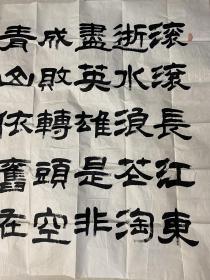 滚滚長江東
逝水浪花淘
盡英雄是非
成敗轉頭空
青山依舊在